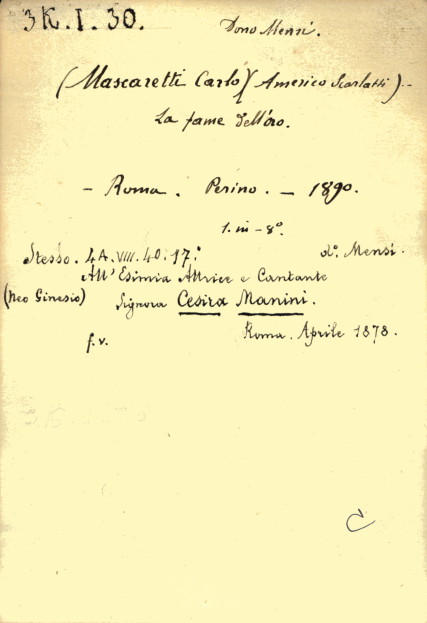 3K.I.30.
Dono Mensi.
(Mascaretti Carlo) (Americo Scarlatti) -
La fame dell'oro.
- Roma. Perino. - 1890.
1. in - 8º.
Stesso. 4A.VIII.40.17.º dº. Mensi.
All'Esimia Attrice e Cantante
(Neo Ginesio) Signora Cesira Manini.
f.v. Roma. Aprile 1878.
C